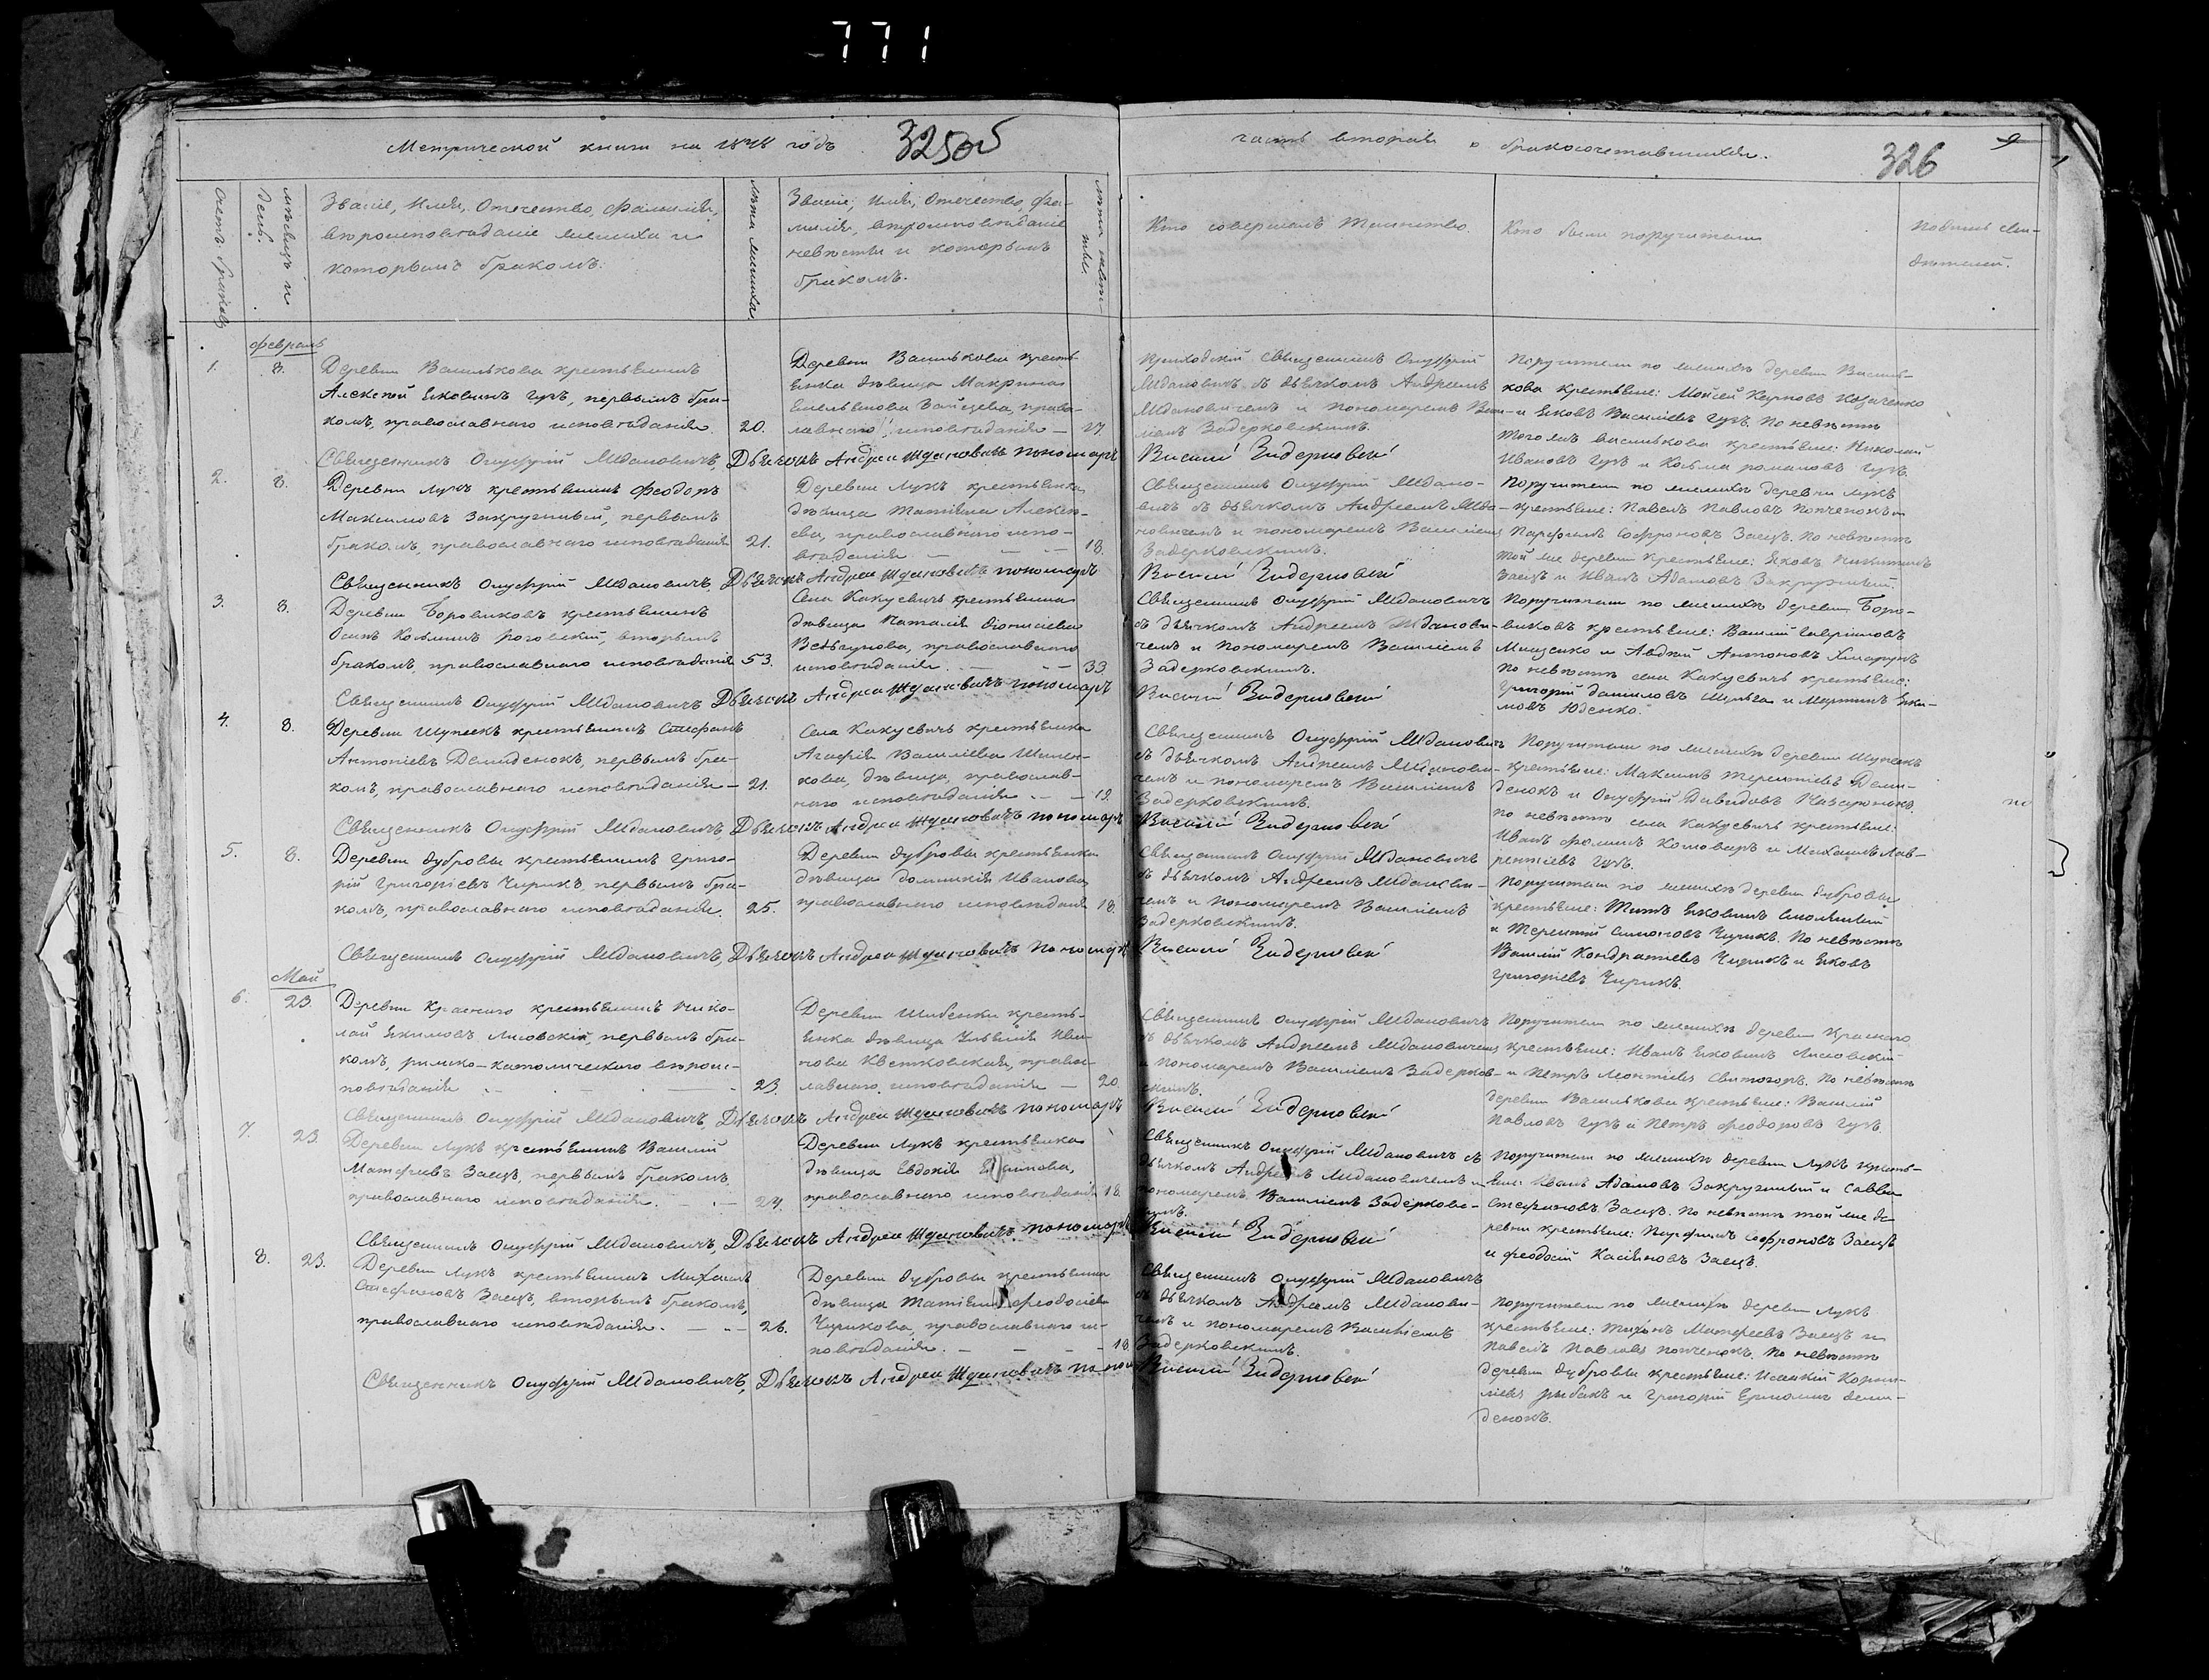 771
Метрической книги на 18 годъ
325об
часть вторая о бракосочетавшихся.
326
9
Счетъ браковъ
мѣсяцъ и
день.
Званіе, Имя, Отечество, фамилія,
вѣроисповѣданіе жениха и
которымъ бракомъ.
Лѣта жениха.
Званіе, Имя, Отечество, фа-
милія, вѣроисповѣданіе
невѣсты и которымъ
бракомъ.
Лѣта невѣ-
сты.
Кто совершалъ Таинство.
Кто были поручители
Подпись сви-
дѣтелей.
февраль
1.
8.
Деревни Василькова крестьянинъ
Алексѣй Яковлевъ Гузъ, первымъ бра-
комъ, православнаго исповѣданія.
20.
Деревни Василькова кресть-
янка дѣвица Макрина
Емельянова Зайцева, право-
славнаго исповѣданія —
Приходскій Священникъ Онуфрій
Ждановичъ съ дьячкомъ Андреемъ
Ждановичемъ и пономаремъ Васи-
ліемъ Задерковскимъ.
Поручители по женихѣ деревни Василь-
кова крестьяне: Мойсей Карповъ Козаченко
и Яковъ Василіевъ Гузъ. По невѣстѣ
того жъ Василькова крестьяне: Николай
Ивановъ Гузъ и Козьма Романовъ Гузъ.
Священникъ Онуфрій Ждановичъ, Дьячокъ Андрей Ждановичъ пономарь
Василій Задерковскій
2.
8.
Деревни Лукъ крестьянинъ Феодоръ
Максимовъ Закружный, первымъ
бракомъ, православнаго исповѣданія
21.
Деревни Лукъ крестьянка
дѣвица Татіана Алексѣ-
ева, православнаго испо-
вѣданія — — —
18.
Священникъ Онуфрій Ждано-
вичъ съ дьячкомъ Андреемъ Жда-
новичемъ и пономаремъ Василіемъ
Задерковскимъ.
Поручители по женихѣ деревни Лукъ
крестьяне: Павелъ Павловъ Попченокъ и
Парфенъ Софроновъ Заецъ. По невѣстѣ
той же деревни крестьяне: Яковъ Никитинъ
Заецъ и Иванъ Адамовъ Закружный.
Священникъ Онуфрій Ждановичъ, Дьячокъ Андрей Ждановичъ пономарь
Василій Задерковскій
3.
8.
Деревни Боровиковъ крестьянинъ
Осипъ Козьминъ Роговскій, вторымъ
бракомъ, православнаго исповѣданія
53.
Села Какуевичъ крестьянка
дѣвица Наталія Діонисіева
православнаго
исповѣданія. — —
33
Священникъ Онуфрій Ждановичъ
съ дьячкомъ Андреемъ Жданови-
чемъ и пономаремъ Василіемъ
Задерковскимъ.
Поручители по женихѣ деревни Боро-
виковъ крестьяне: Василій Гавріиловъ
Мищенко и Авдѣй Антоновъ
По невѣстѣ села Какуевичъ крестьяне:
Григорій Даниловъ Шульга и Мартинъ Яки-
мовъ Юденко.
Священникъ Онуфрій Ждановичъ Дьячокъ Андрей Ждановичъ пономарь
Василій Задерковскій
4.
8.
Деревни Шупеекъ крестьянинъ Стефанъ
Антоніевъ Демиденокъ, первымъ бра-
комъ, православнаго исповѣданія —
21.
Села Какуевичъ крестьянка
Агафія Василіева
дѣвица, православ-
наго исповѣданія — —
19.
Священникъ Онуфрій Ждановичъ
съ дьячкомъ Андреемъ Жданови-
чемъ и пономаремъ Василіемъ
Задерковскимъ.
Поручители по женихѣ деревни Шупеекъ
крестьяне: Максимъ Терентіевъ Деми-
денокъ и Онуфрій Давидовъ
по невѣстѣ села Какуевичъ крестьяне:
Иванъ Фоминъ Котоваръ и Михаилъ Лав-
рентіевъ Гузъ.
Священникъ Онуфрій Ждановичъ, Дьячокъ Андрей Ждановичъ пономарь
Василій Задерковскій
5.
8.
Деревни Дубровы крестьянинъ Григо-
рій Григоріевъ Чирикъ, первымъ бра-
комъ, православнаго исповѣданія.
25.
Деревни Дубровы крестьянка
дѣвица Домникія Иванова
православнаго исповѣданія
18.
Священникъ Онуфрій Ждановичъ
съ дьячкомъ Андреемъ Жданови-
чемъ и пономаремъ Василіемъ
Задерковскимъ.
Поручители по женихѣ деревни Дубровы
крестьяне: Титъ Яковлевъ
и Терентій Симоновъ Чирикъ. По невѣстѣ
Василій Кондратіевъ Чирикъ и Яковъ
Григоріевъ Чирикъ.
Священникъ Онуфрій Ждановичъ, Дьячокъ Андрей Ждановичъ пономарь
Василій Задерковскій
Май
6.
23.
Деревни Краснаго крестьянинъ Нико-
лай Якимовъ Лисовскій, первымъ бра-
комъ, римско-католическаго вѣроис-
повѣданія —
23.
Деревни Шибенки кресть-
янка дѣвица Ульянія Ива-
нова Квятковская, право-
славнаго исповѣданія —
20.
Священникъ Онуфрій Ждановичъ
съ дьячкомъ Андреемъ Ждановичемъ
и пономаремъ Василіемъ Задерков-
скимъ.
Поручители по женихѣ деревни Краснаго
крестьяне: Иванъ Яковлевъ Лисовскій
и Петръ Леонтіевъ Святогоръ. По невѣстѣ
деревни Василькова крестьяне: Василій
Павловъ Гузъ и Петръ Феодоровъ Гузъ.
Священникъ Онуфрій Ждановичъ, Дьячокъ Андрей Ждановичъ пономарь
Василій Задерковскій
7.
23.
Деревни Лукъ крестьянинъ Василій
Матфеевъ Заецъ, первымъ бракомъ,
православнаго исповѣданія. — —
24.
Деревни Лукъ крестьянка
дѣвица Евдокія
православнаго исповѣданія
18.
Священникъ Онуфрій Ждановичъ съ
дьячкомъ Андреемъ Ждановичемъ и
пономаремъ Василіемъ Задерковс-
кимъ.
Поручители по женихѣ деревни Лукъ кресть-
яне: Иванъ Адамовъ Закружный и Савва
Стефановъ Заецъ. По невѣстѣ той же де-
ревни крестьяне: Парфенъ Софроновъ Заецъ
и Феодосій Касьяновъ Заецъ.
Священникъ Онуфрій Ждановичъ, Дьячокъ Андрей Ждановичъ пономарь
Василій Задерковскій
8.
23.
Деревни Лукъ крестьянинъ Михаилъ
Стефановъ Заецъ, вторымъ бракомъ,
православнаго исповѣданія. — —
26.
Деревни Дубровы крестьянка
дѣвица Татіана Феодосіева
Чирикова, православнаго ис-
повѣданія. — — —
18
Священникъ Онуфрій Ждановичъ
съ дьячкомъ Андреемъ Жданови-
чемъ и пономаремъ Василіемъ
Задерковскимъ.
Поручители по женихѣ деревни Лукъ
крестьяне: Тихонъ Матфеевъ Заецъ и
Павелъ Павловъ Попченокъ. По невѣстѣ
деревни Дубровы крестьяне: Исаакій Корни-
ліевъ Рыбакъ и Григорій Ермолинъ Деми-
денокъ.
Священникъ Онуфрій Ждановичъ, Дьячокъ Андрей Ждановичъ
Василій Задерковскій